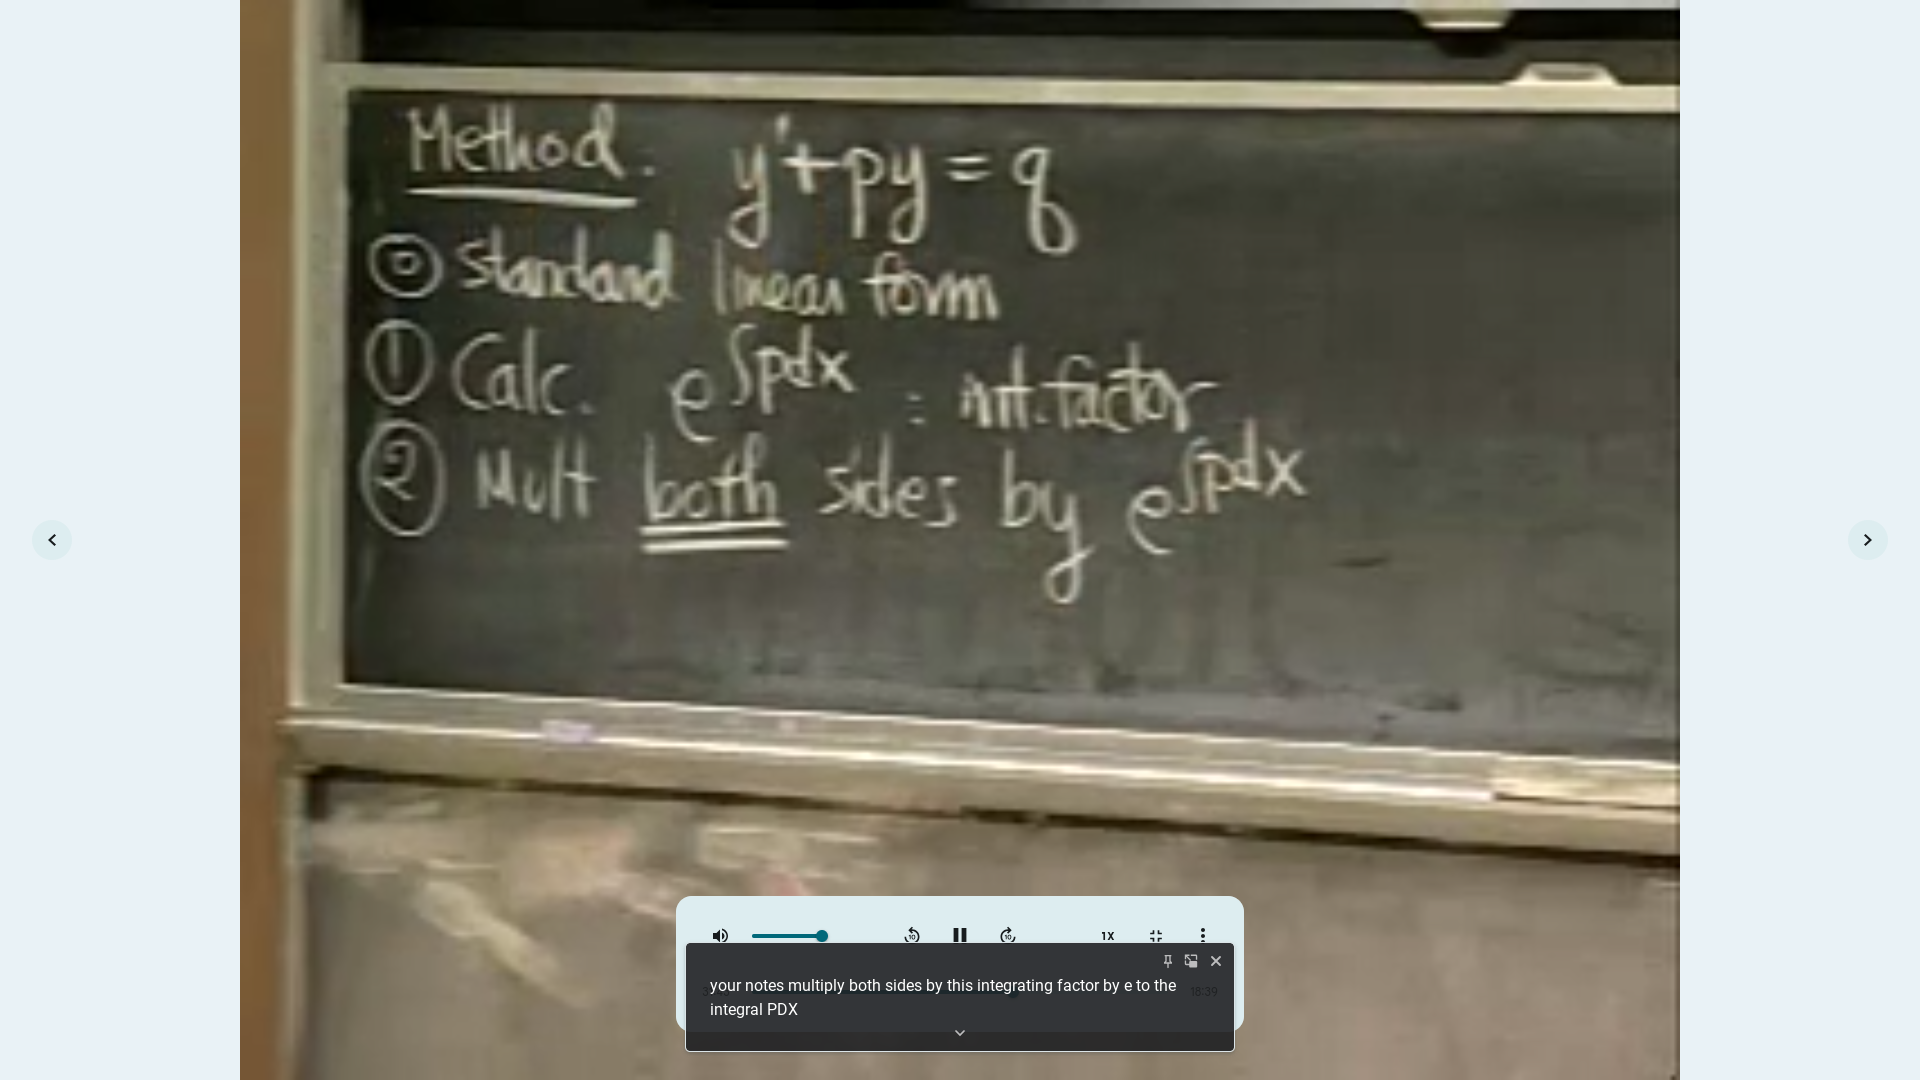 Method. y'+py=q
⓪ Standard linear form
① Calc. e^∫pdx = int. factor
② Mult both sides by e^∫pdx
10 10 1X
your notes multiply both sides by this integrating factor by e to the
18:39
integral PDX